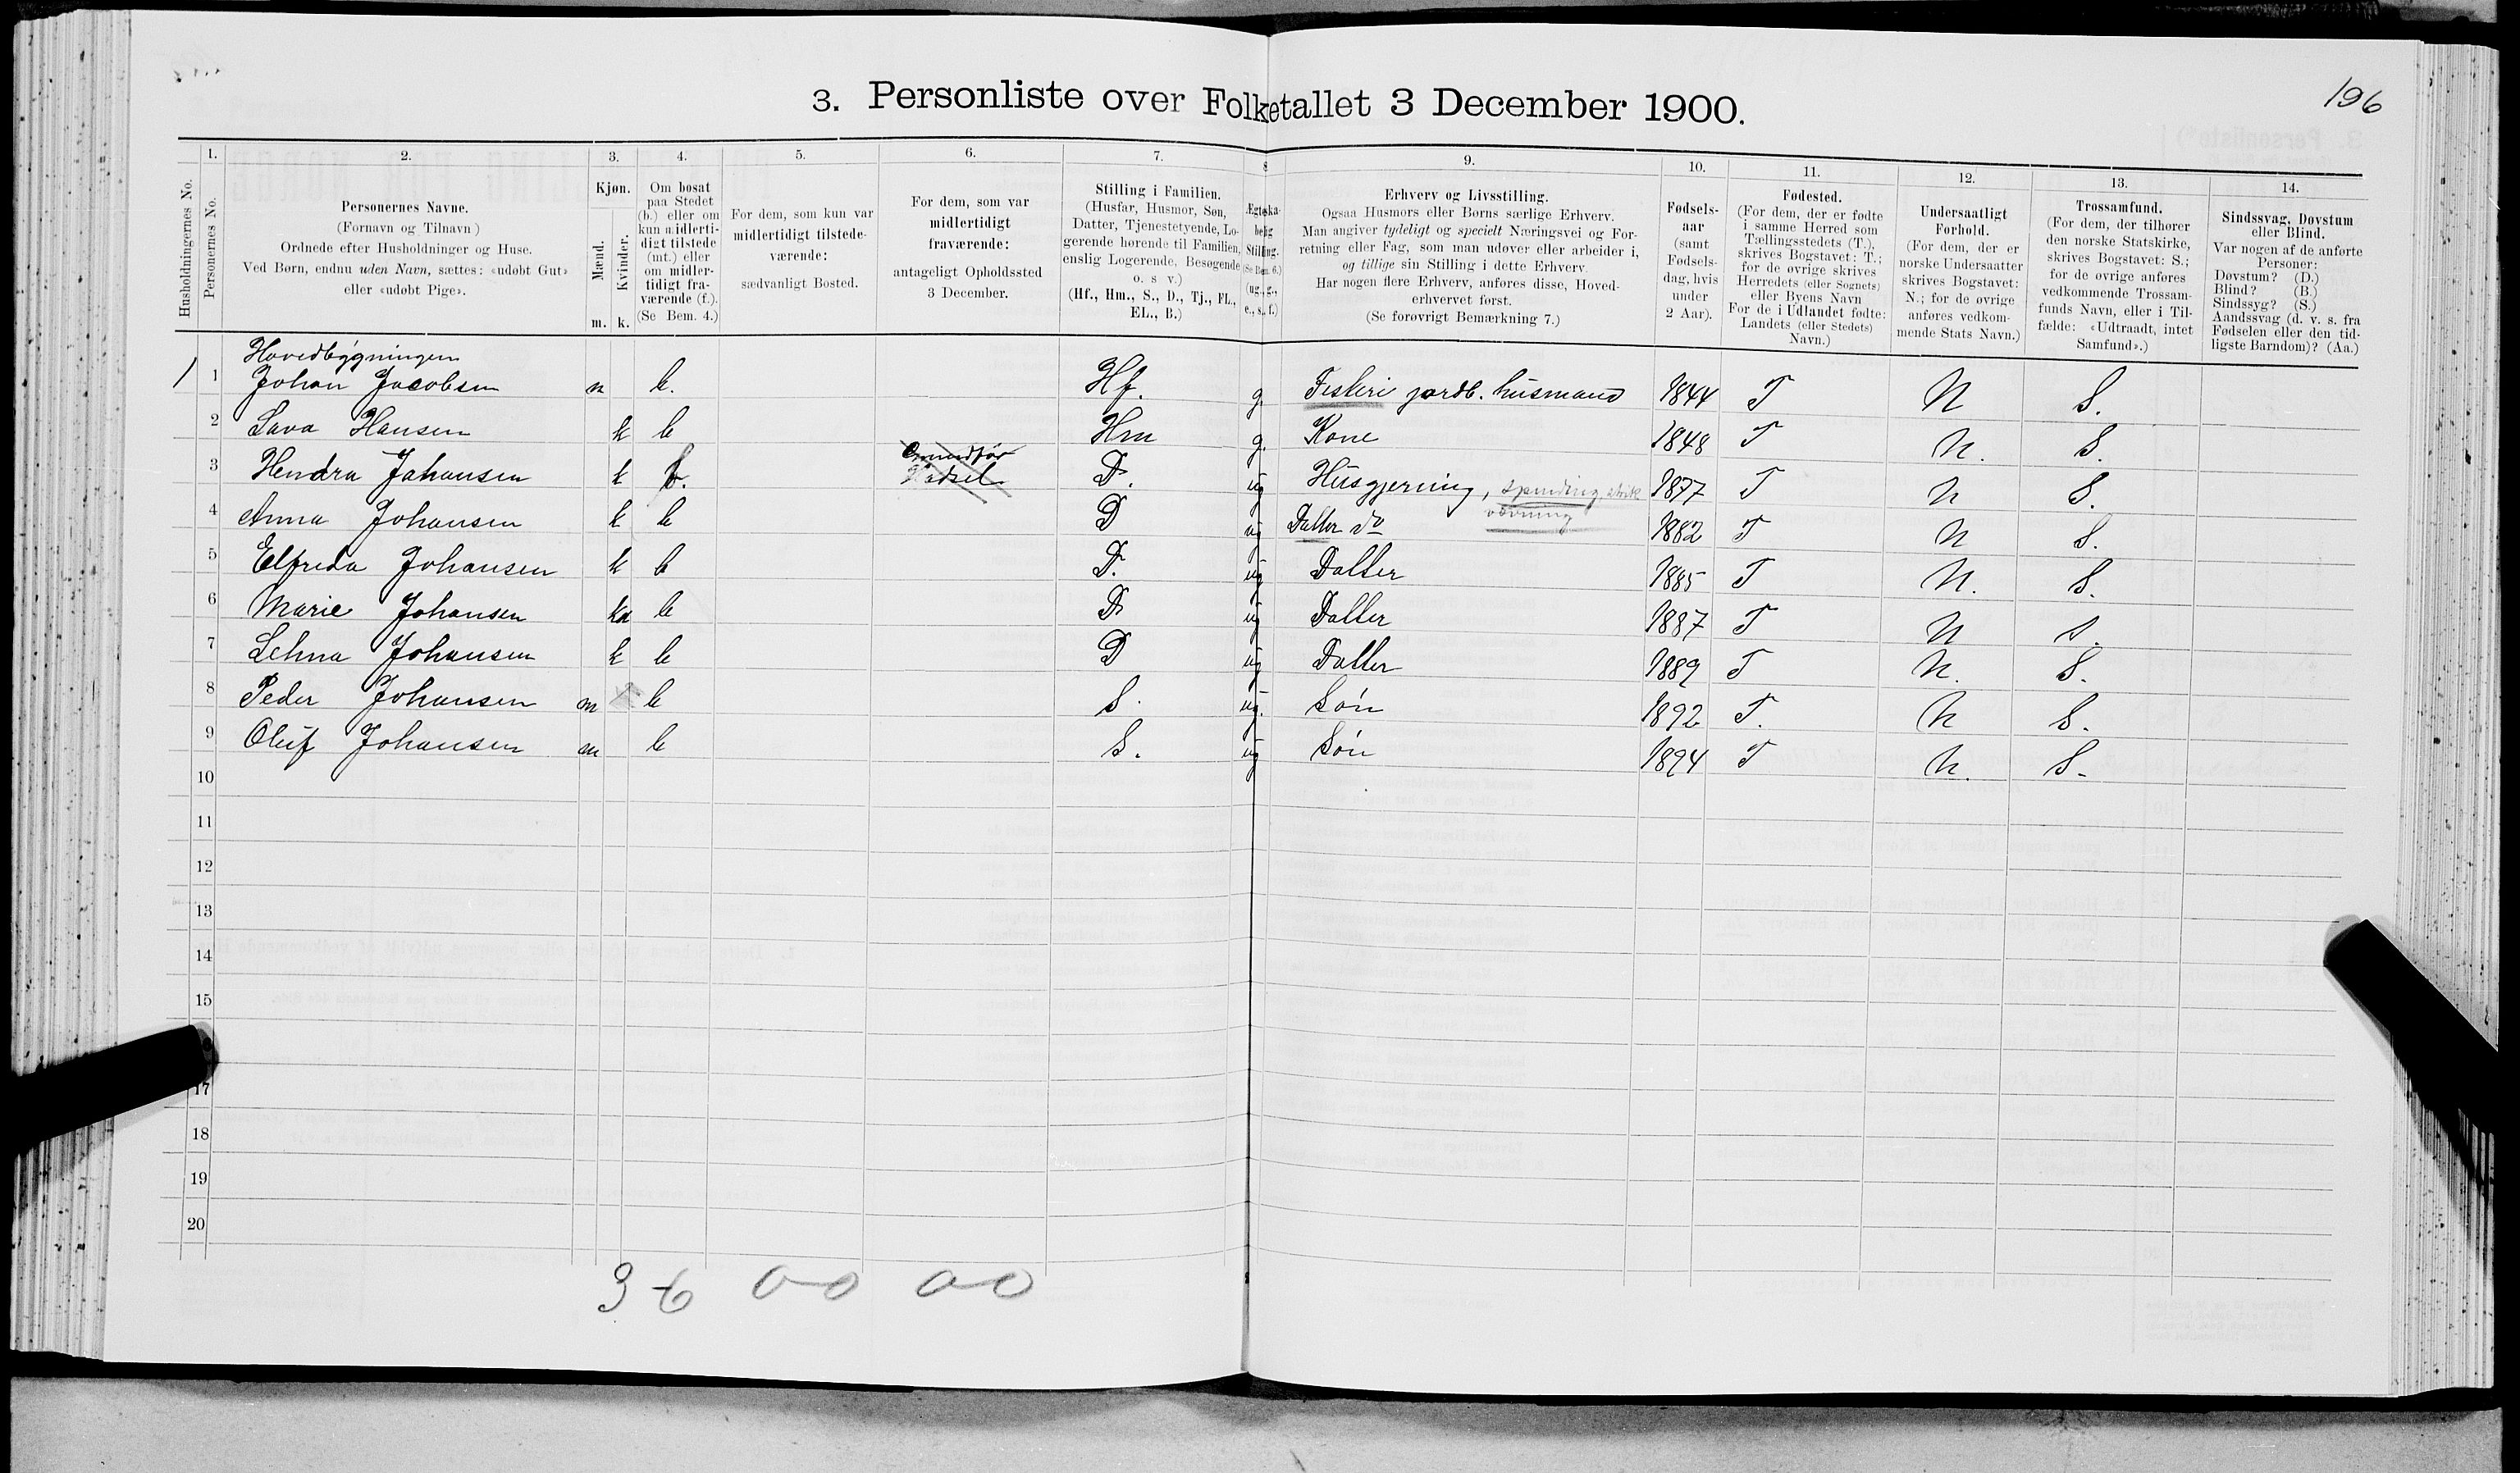 196
3. Personliste over Folketallet 3 December 1900.
Husholdningernes No.
1.
Personernes No.
2.
Personernes Navne.
(Fornavn og Tilnavn )
Ordnede efter Husholdninger og Huse.
Ved Børn, endnu uden Navn, sættes: «udøbt Gut»
eller «udøbt Pige».
3.
Kjøn.
Mænd.
Kvinder.
m. k.
4.
Om bosat
paa Stedet
(b.) eller om
kun midlerti-
digt tilstede
(mt.) eller
om midler-
tidigt fra-
værende (f.).
(Se Bem. 4.)
5.
For dem, som kun var
midlertidigt tilstede-
værende:
sædvanligt Bosted.
6.
For dem, som var
midlertidigt
fraværende:
antageligt Opholdssted
3 December.
7.
Stilling i Familien.
(Husfar, Husmor, Søn,
Datter, Tjenestetyende, Lo-
gerende hørende til Familien,
enslig Logerende, Besøgende
o. s v.)
(Hf., Hm., S., D., Tj., FL.,
EL., B.)
8
Ægteska-
belig
Stilling.
(Se Bem. 6.)
(ug., g.,
e., s., f.)
9.
Erhverv og Livsstilling.
Ogsaa Husmors eller Børns særlige Erhverv.
Man angiver tydeligt og specielt Næringsvei og For-
retning eller Fag, som man udøver eller arbeider i,
og tillige sin Stilling i dette Erhverv.
Har nogen flere Erhverv, anføres disse, Hoved-
erhvervet først.
(Se forøvrigt Bemærkning 7.)
10.
Fødsels-
aar
(samt
Fødsels-
dag, hvis
under
2 Aar).
11.
Fødested.
(For dem, der er fødte
i samme Herred som
Tællingsstedets (T.),
skrives Bogstavet: T.;
for de øvrige skrives
Herredets (eller Sognets)
eller Byens Navn
For de i Udlandet fødte:
Landets (eller Stedets)
Navn.)
12.
Undersaatligt
Forhold.
(For dem, der er
norske Undersaatter
skrives Bogstavet:
N.; for de øvrige
anføres vedkom-
mende Stats Navn.)
13.
Trossamfund.
(For dem, der tilhører
den norske Statskirke,
skrives Bogstavet: S.;
for de øvrige anføres
vedkommende Trossam-
funds Navn, eller i Til-
fælde: «Udtraadt, intet
Samfund».)
14.
Sindssvag, Døvstum
eller Blind.
Var nogen af de anførte
Personer:
Døvstum? (D.)
Blind? (B.)
Sindssyg? (S.)
Aandssvag (d. v. s. fra
Fødselen eller den tid-
ligste Barndom)? (Aa.)
Hovedbygningen
1 1 Johan Jacobsen m b. Hf. g. Fiskeri jordb. husmand 1844 T N S.
2 Lava Hansen k b Hm g. Kone 1848 T N. S.
3 Hendra Johansen k b. Hadsel D. ug Husgjerning, spinding, strik 1877 T N S.
vævning
4 Anna Johansen k b D ug Datter do 1882 T N S.
5 Elfreda Johansen k b D. ug Datter 1885 T N. S.
6 Marie Johansen k b D ug Datter 1887 T N S.
7 Lehna Johansen k b D ug Datter 1889 T N. S.
8 Peder Johansen m b S. ug. Søn 1892 T. N S.
9 Oluf Johansen m b S. ug Søn 1894 T N. S.
10
11
12
13
14
15
17
18
19
20
3 6 0-0 0-0